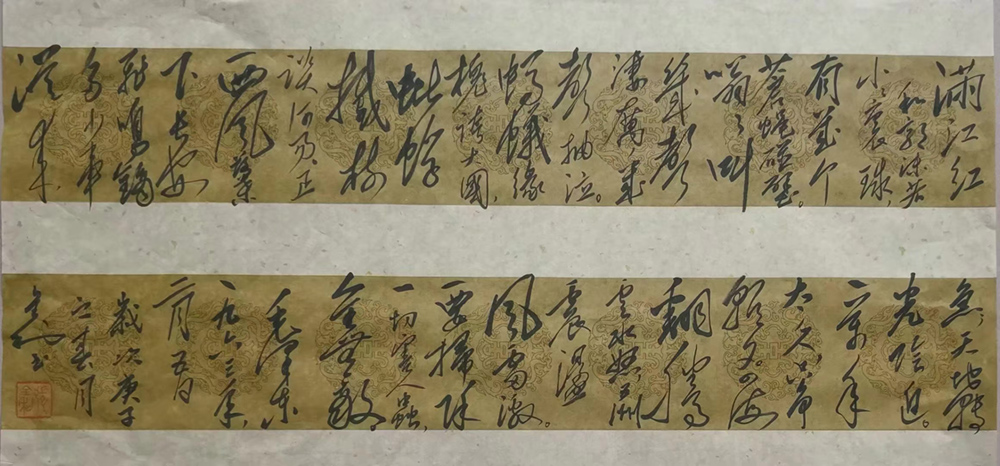 满江红
和郭沫若
小小寰球，
有几个
苍蝇碰壁。
嗡嗡叫
几声
凄厉几
声抽泣。
蚂蚁缘
槐夸大国，
蚍蜉
撼树
谈何易。正
西风落叶
下长安
飞鸣镝
多少事
从来
急，天地转
光阴迫。
一万年
太久只争
朝夕四海
翻腾
云水怒五洲
震荡
风雷激。
要扫除
一切害人虫，
全无敌
毛泽东
一九六三年
二月五日
岁次庚子
春月
书